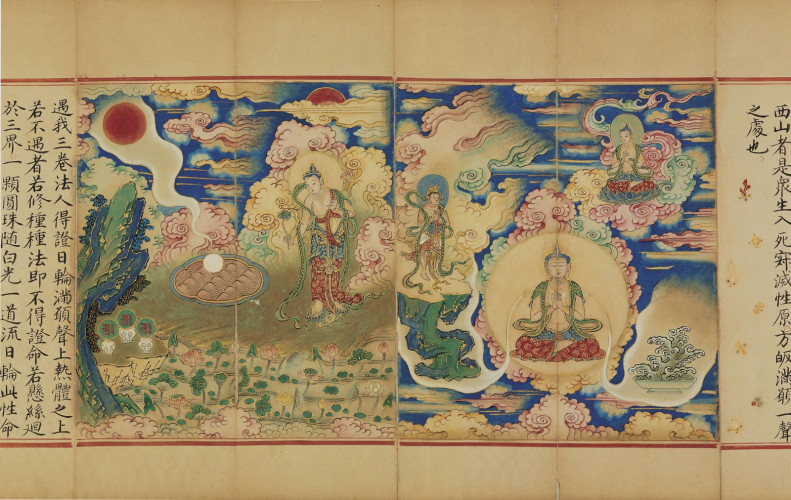 西山者是衆生入死寂滅性原方皈滿願一聲
之處也
遇我三卷法人得證日輪滿願聲上熱體之上
若不遇者若修種種法即不得證命若懸絲迴
於三界一顆圓珠隨白光一道流日輪此性命